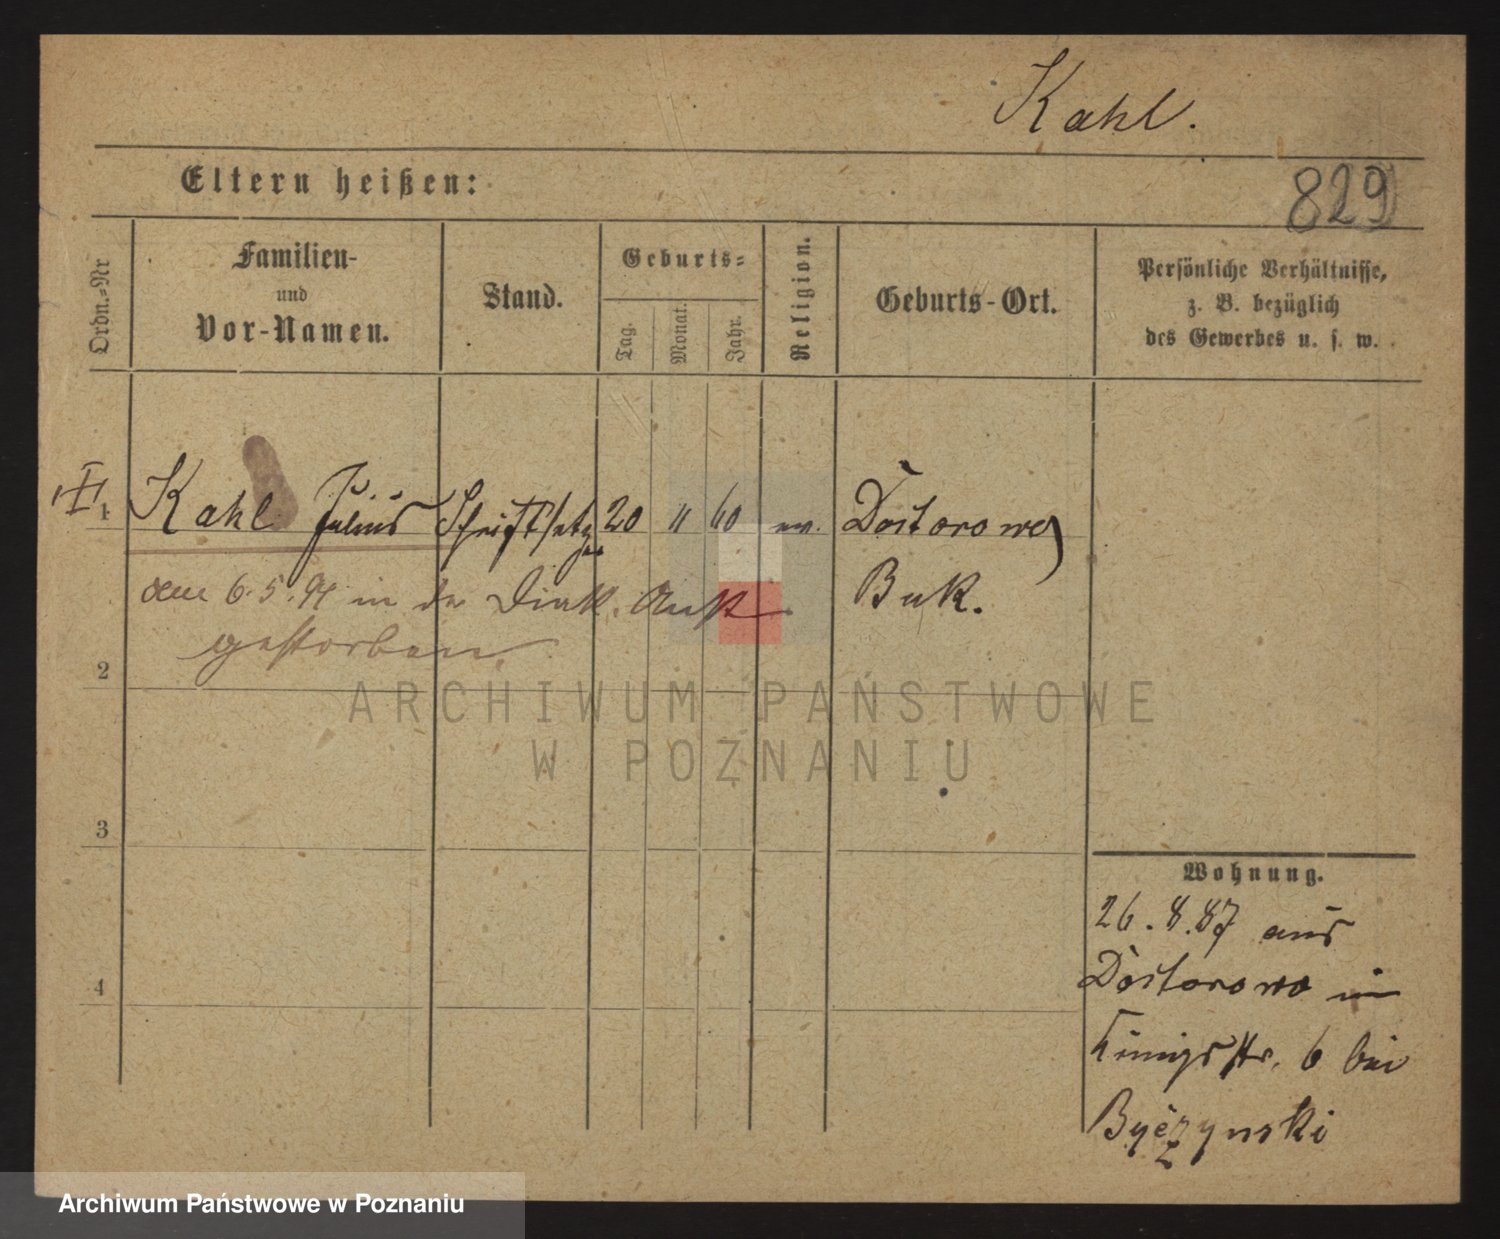 Kahl.
Eltern heißen:
829
Ordn.-Nr
Familien-
und
Vor-Namen.
Stand.
Geburts-
Tag.
Monat.
Jahr.
Religion.
Geburts-Ort.
Persönliche Verhältnisse,
z. B. bezüglich
des Gewerbes u. s. w.
1 Kahl Julius Schriftsetzer 20 11 60 ev. Dostorowo
Buk.
den 6.5.91 in der Diak. Anst.
gestorben
2
ARCHIWUM PAŃSTWOWE
W POZNANIU
3
4
Wohnung.
26.8.87 aus
Dostorowo in
Königsstr. 6 bei
Byczynski
Archiwum Państwowe w Poznaniu